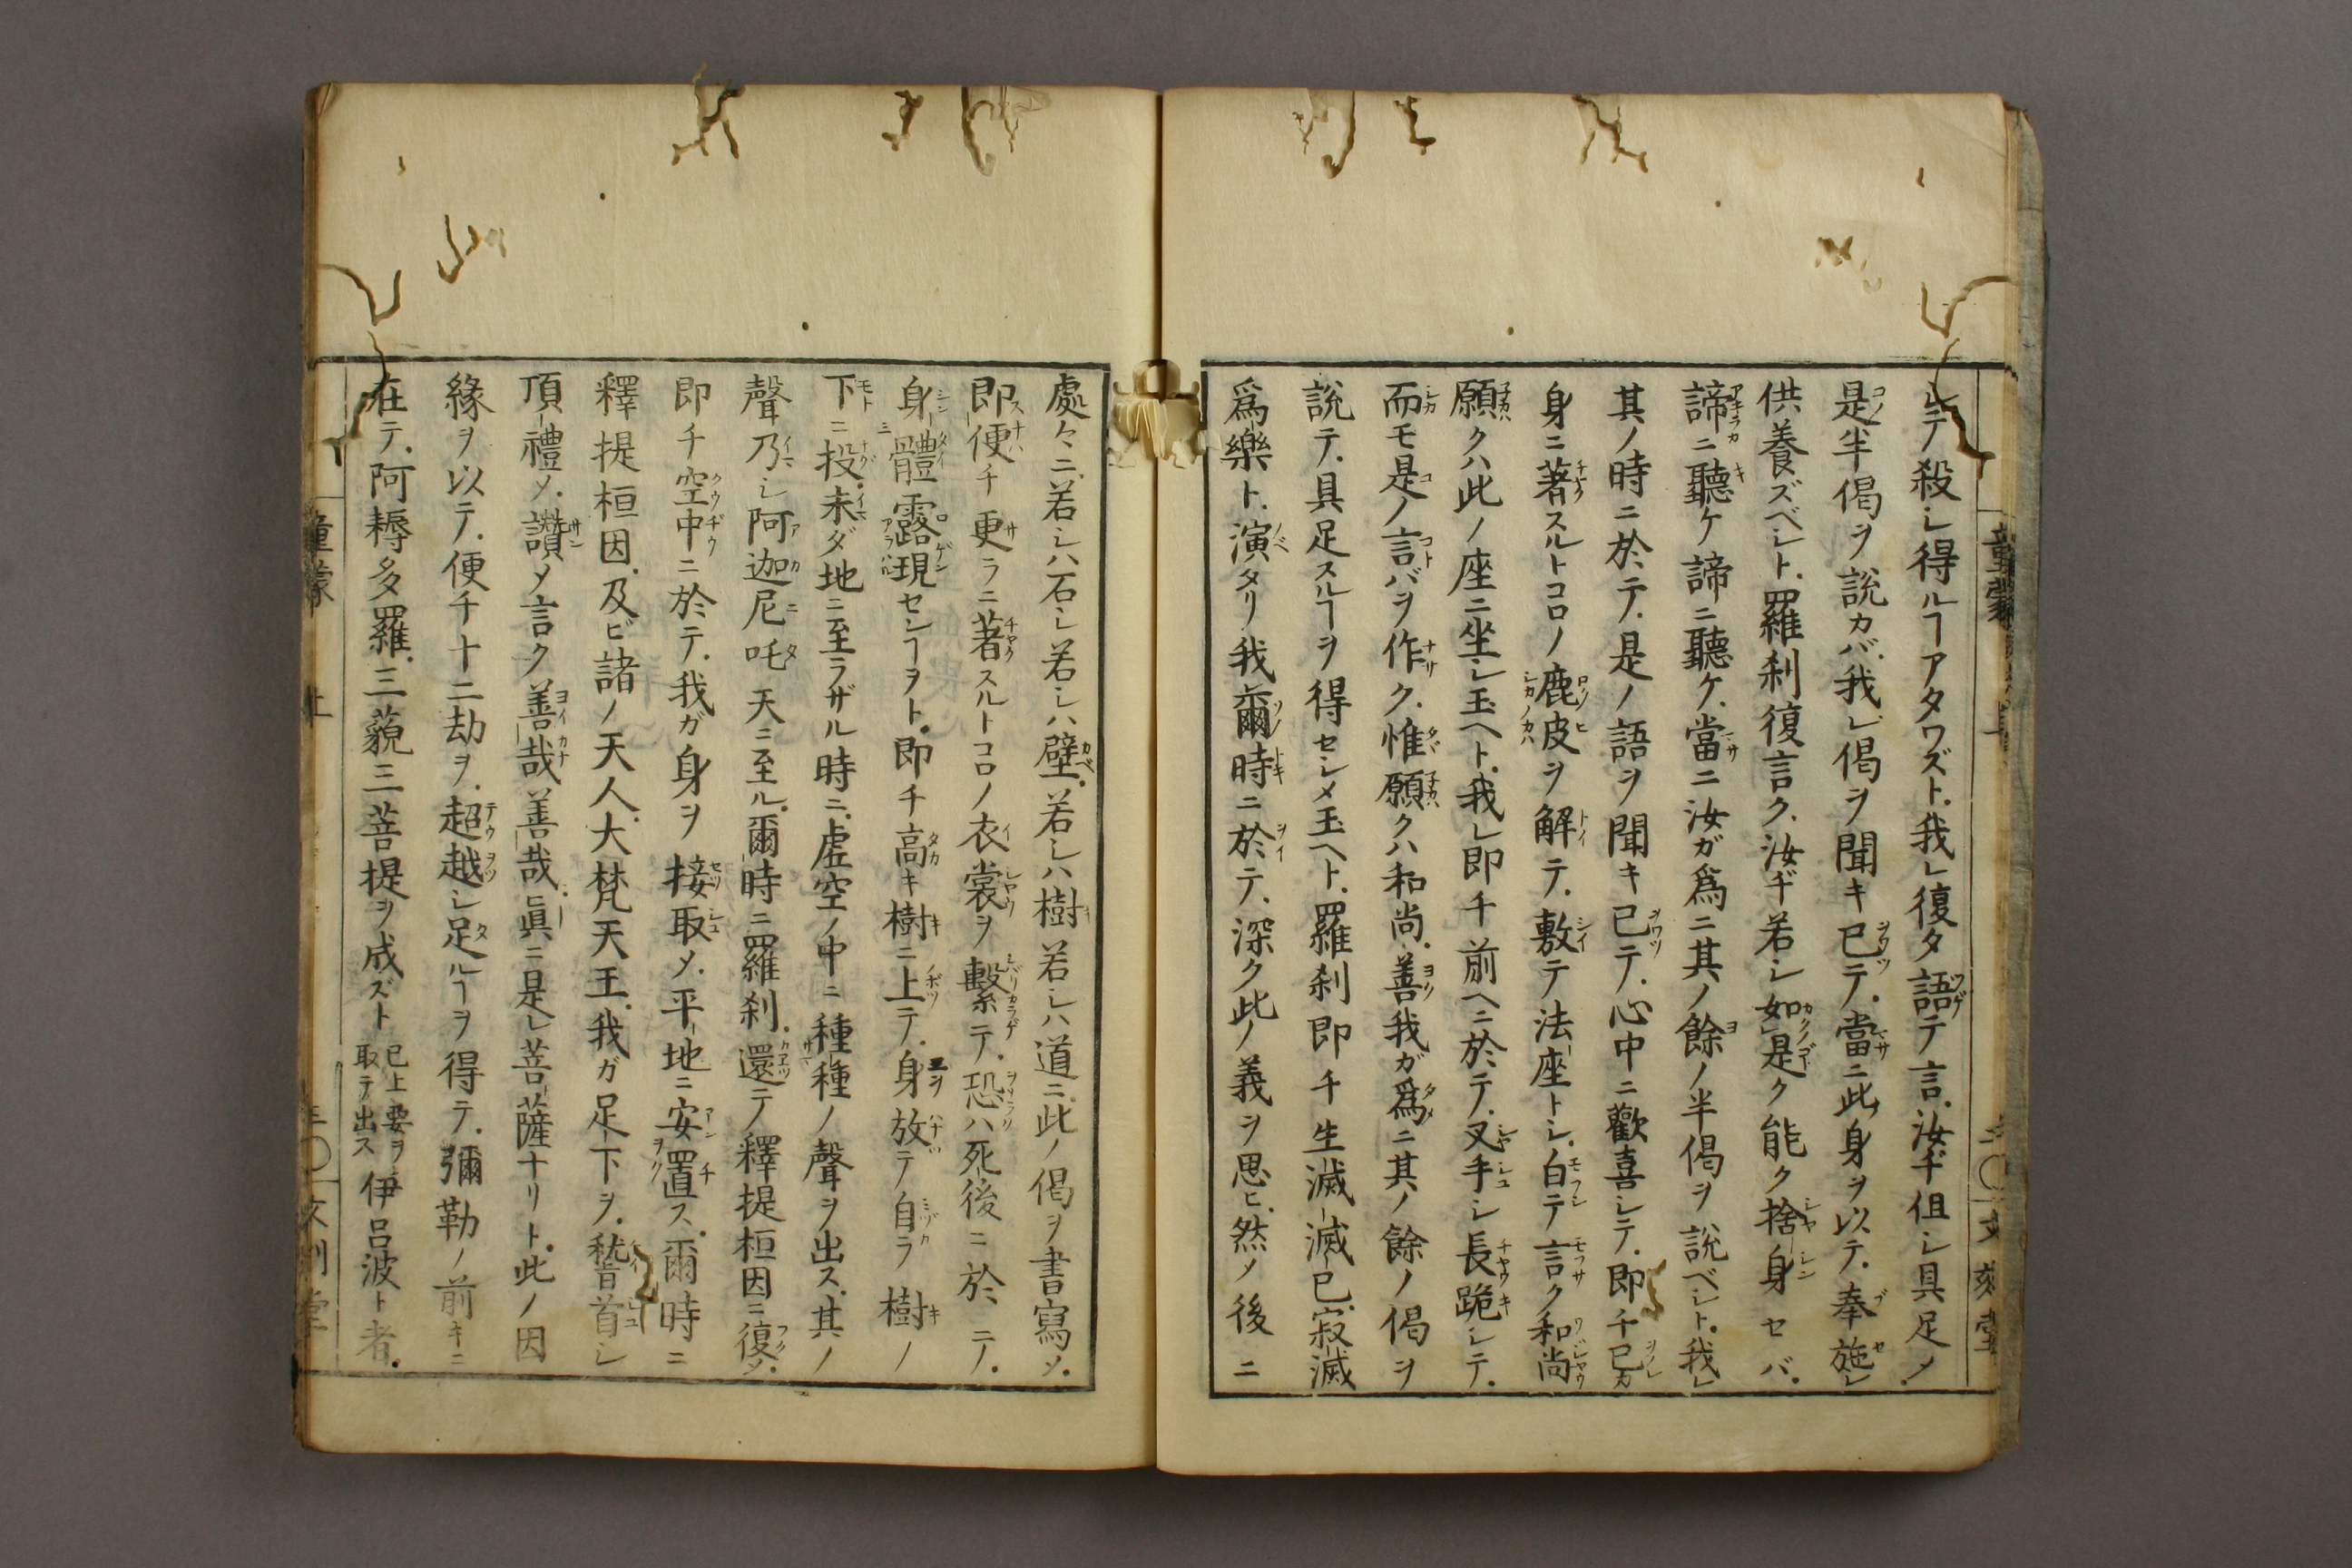 シテ殺シ得ルヿアタワズト.我レ復タ語テ言.汝ヂ但シ具足メ.
是半偈ヲ説カバ.我レ偈ヲ聞キ已テ.當ニ此身ヲ以テ.奉施シ
供養ズベシト.羅刹復言ク.汝ヂ若シ如是ク能ク捨身セバ.
諦ニ聽ケ諦ニ聽ケ.當ニ汝ガ爲ニ其ノ餘ノ半偈ヲ説ベシト.我レ
其ノ時ニ於テ.是ノ語ヲ聞キ已テ.心中ニ歡喜シテ.即チ已カ
身ニ著スルトコロノ鹿皮ヲ解テ.敷テ法座トシ.白テ言ク和尚
願クハ此ノ座ニ坐シ玉ヘト.我レ即チ前ヘニ於テ.叉手シ長跪シテ.
而モ是ノ言バヲ作ク.惟願クハ和尚.善我ガ爲ニ其ノ餘ノ偈ヲ
説テ.具足スルヿヲ得セシメ玉ヘト.羅刹即チ生滅滅已.寂滅
爲樂ト.演タリ.我爾時ニ於テ.深ク此ノ義ヲ思ヒ.然ノ後ニ
處々ニ.若シハ石シ若シハ壁.若シハ樹若シハ道ニ.此ノ偈ヲ書寫メ.
即便チ更ラニ著スルトコロノ衣裳ヲ繫テ.恐ハ死後ニ於ニノ.
身體露現センヿヲト.即チ高キ樹ニ上テ.身ヲ放テ自ラ樹ノ
下ニ投.未ダ地ニ至ラザル時ニ.虚空ノ中ニ種種ノ聲ヲ出ス.其ノ
聲乃シ阿迦尼吒天ニ至ル.爾時ニ羅刹.還テ釋提桓因ニ復メ.
即チ空中ニ於テ.我ガ身ヲ接取メ.平地ニ安置ス.爾時ニ
釋提桓因.及ビ諸ノ天人.大梵天王.我ガ足下ヲ.稽首シ
頂禮メ.讚メ言ク善哉善哉.眞ニ是レ菩薩ナリト.此ノ因
緣ヲ以テ.便チ十二劫ヲ.超越シ足ルヿヲ得テ.彌勒ノ前キニ
在テ.阿耨多羅.三藐三菩提ヲ成ズト 已上要ヲ取テ出ス 伊呂波ト者.